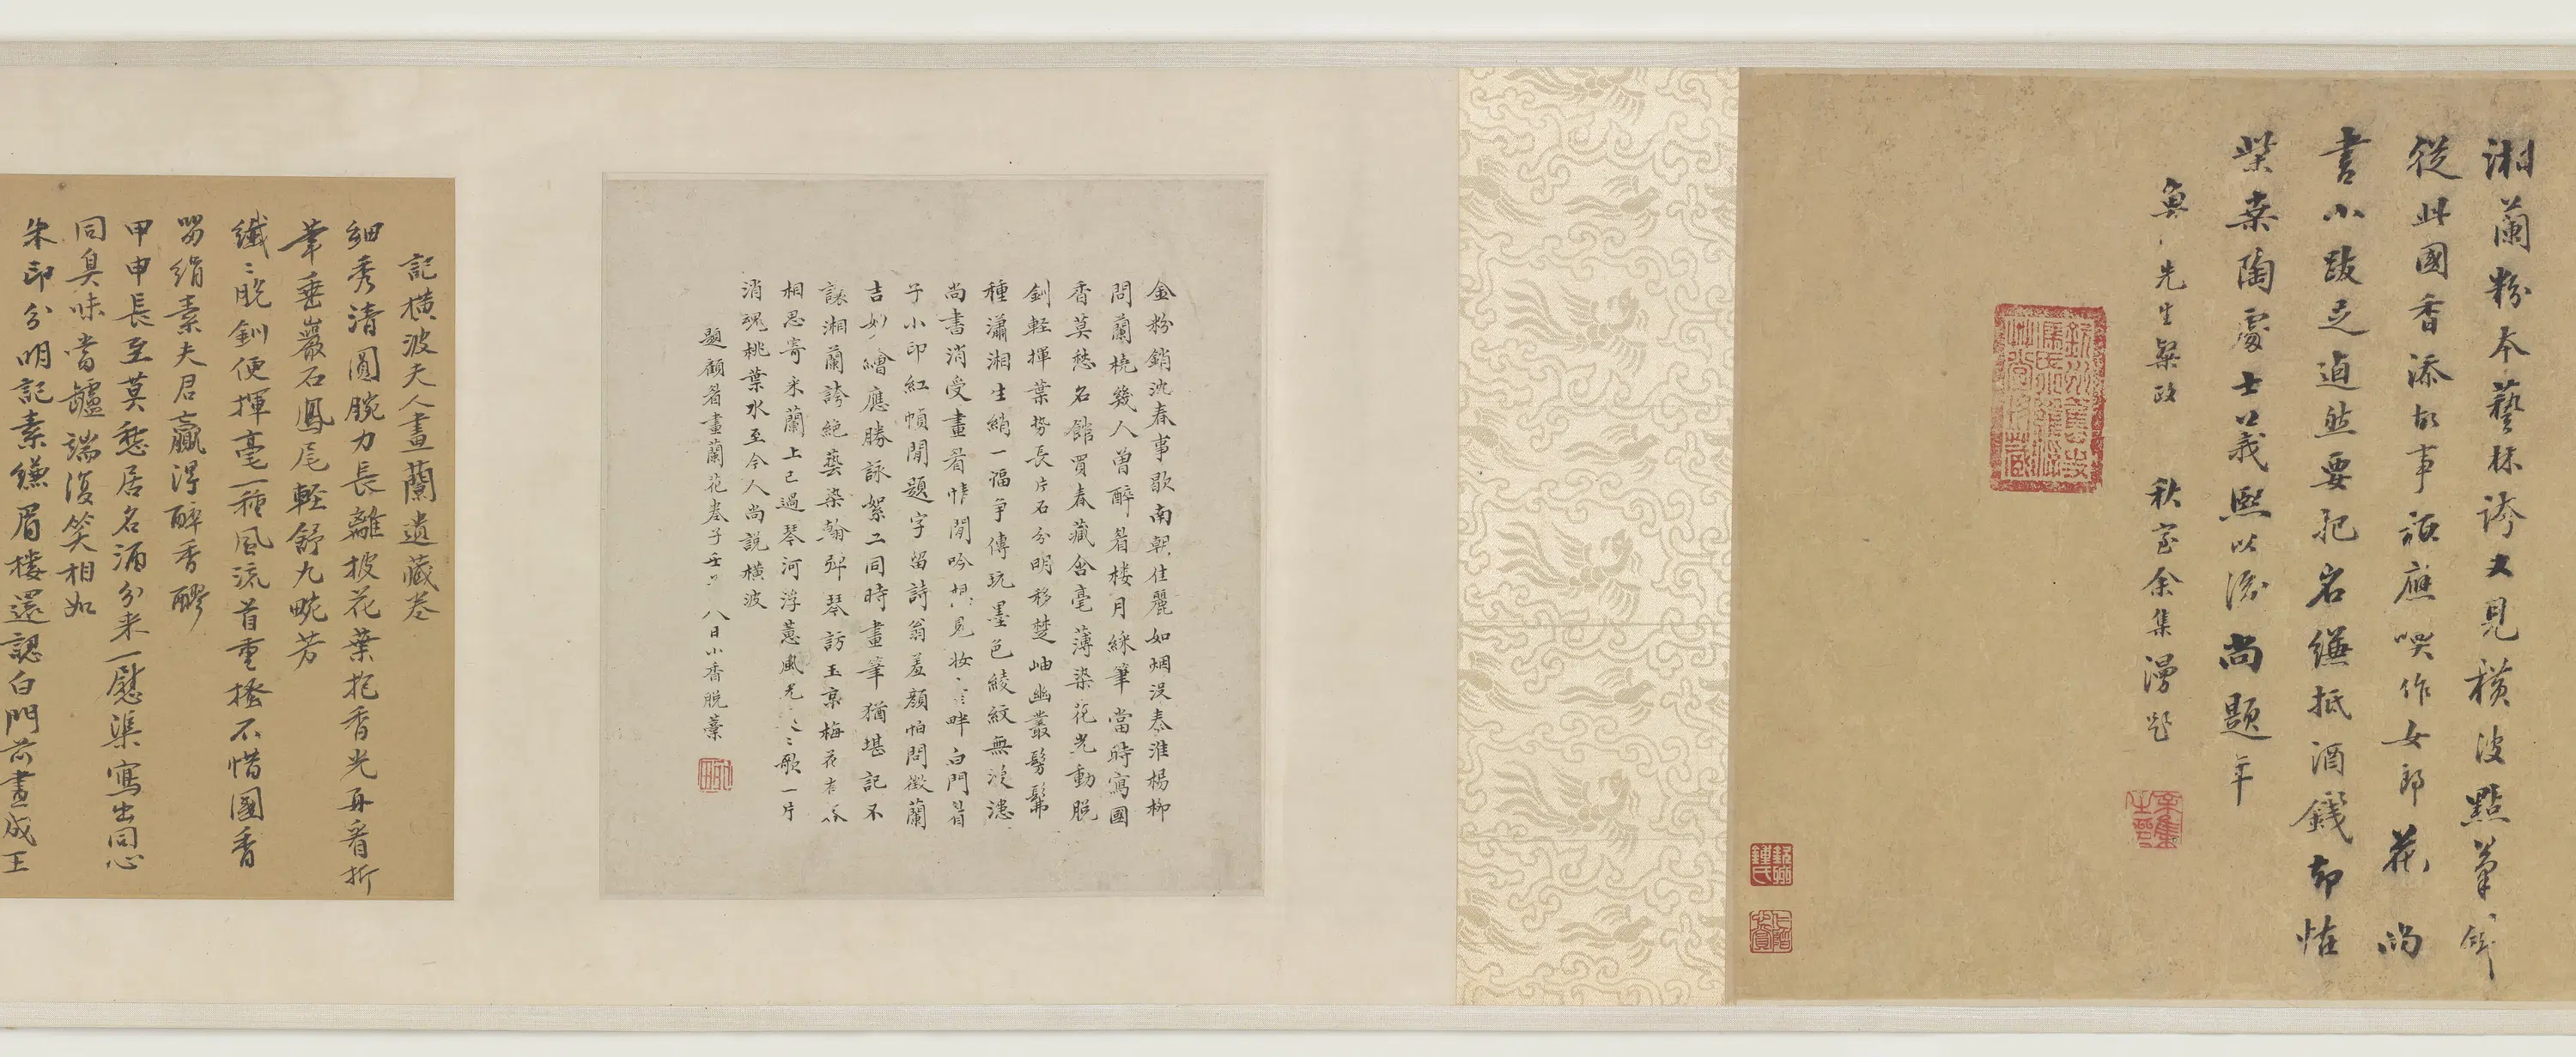 湘蘭粉本藝林誇又見横波點筆斜
從此國香添故事祗應喚作女郎花尚
書小跋足逌然要犯名縑抵酒錢却怪
柴桒陶處士口義熙以後尚題年
奠先生粲政 秋室余集漫題
金粉銷沈春事歇南朝佳麗如烟没秦淮楊柳
問蘭橈幾人曽醉眉楼月綵筆當時寫國
香莫愁名館買春藏含毫薄染花光動脱
釧輕揮葉势長片石分明移楚岫幽叢髣髴
種瀟湘生綃一福争傳玩墨色綾紋無漫漶
尚書消受畫眉情閒吟想見妝畔白門眉
子小印紅幀閒題字留詩翁羞顔怕問徴蘭
吉妙繪應勝詠絮工同時畫筆猶堪記不
訤湘蘭誇絶藝染翰弹琴訪玉京梅花
相思寄采蘭上巳過琴河浮蕙風光歌一片
消魂桃葉水至今人尚説横波
題顧眉畫蘭花巻子壬 八日小香脱藁
記横波夫人畫蘭遺藏巻
細秀清圓腕力長離披花葉抱香光再看折
筆垂巖石鳳尾軽舒九畹芳
纖〻脱釧便揮毫一種風流首重搔不惜國香
留絹素夫君贏淂醉香醪
甲申長至莫愁居名酒分来一慰渠寫出同心
同臭味當罏端復笑相如
朱印分明記素縑眉楼還認白門前畫成王